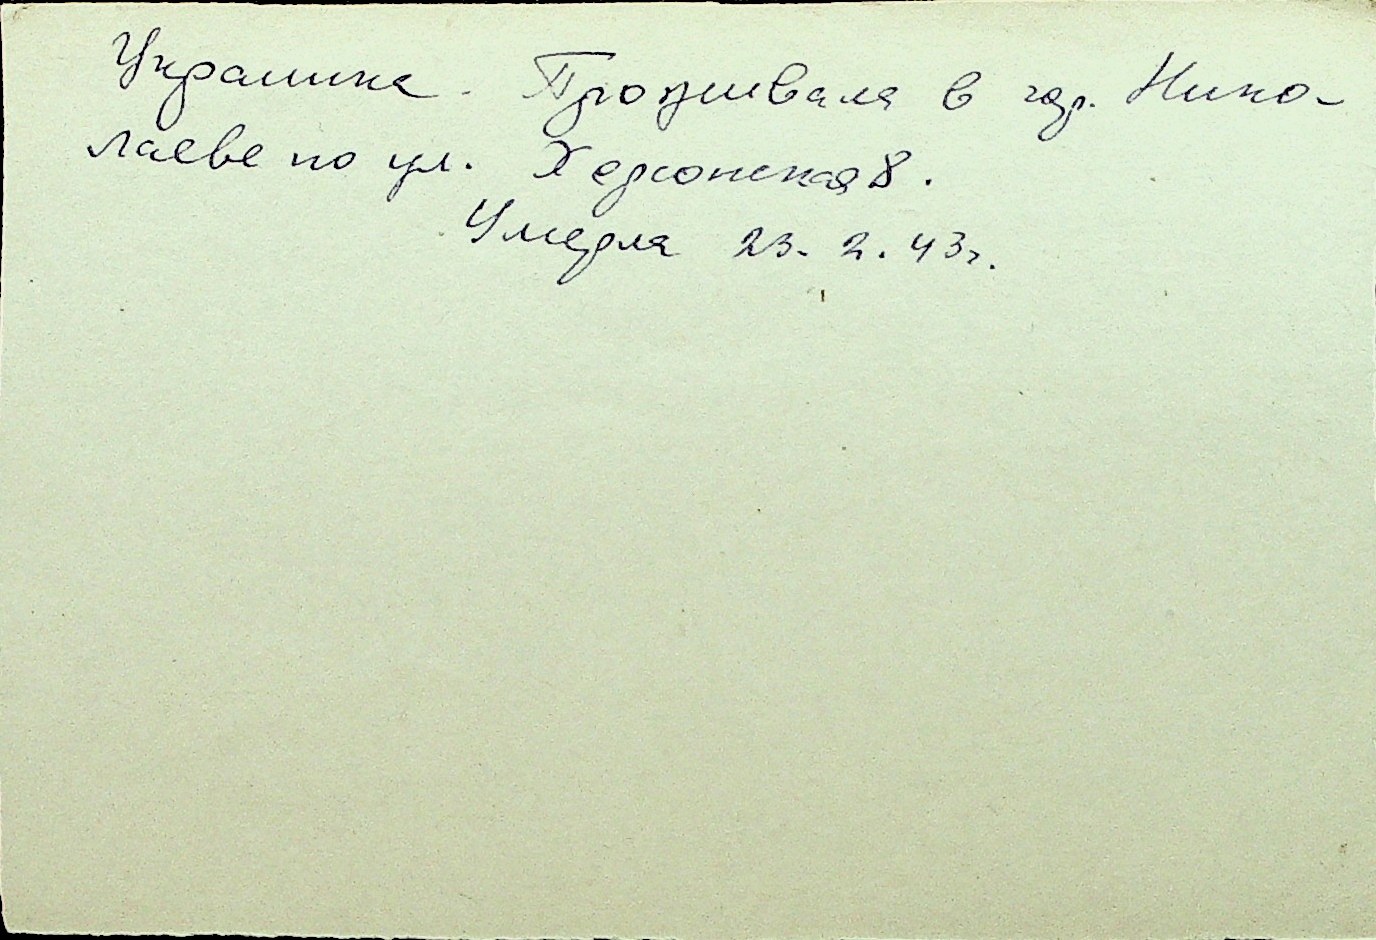 Украинка. Проживала в гор. Нико-
лаеве по ул. Херсонская 8.
Умерла 23. 2. 43 г.